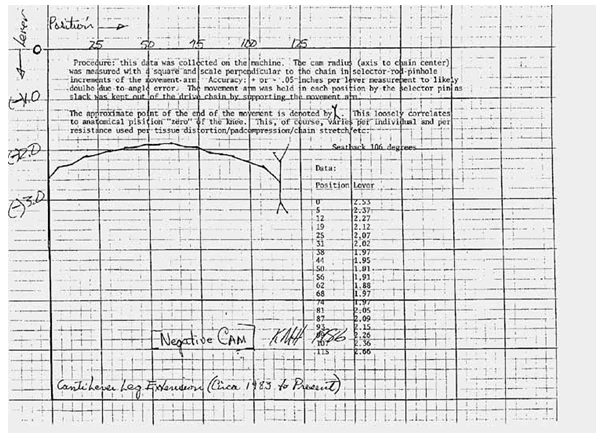 Lever
Position
0
25 50 75 100 125
Procedure: this data was collected on the machine. The cam radius (axis to chain center)
was measured with a square and scale perpendicular to the chain in selector-rod-pinhole
increments of the movement-arm. Accuracy: + or - .05 inches per lever measurement to likely
doulbe due to angle error. The movement arm was held in each position by the selector pin as
slack was kept out of the drive chain by supporting the movement arm.
(-)1.0
The approximate point of the end of the movement is denoted by Y. This loosely correlates
to anatomical pisition "zero" of the knee. This, of course, varies per individual and per
resistance used per tissue distortion/padcompression/chain stretch/etc:
(-)2.0
Seatback 106 degrees
Data:
Position Lever
(-)3.0
0 2.53
5 2.37
12 2.27
19 2.12
25 2.07
31 2.02
38 1.97
44 1.95
50 1.91
56 1.91
62 1.88
68 1.97
74 1.97
81 2.05
87 2.09
2.15
2.26
2.36
115 2.66
Negative CAM
KMH 1986
Cantilever Leg Extension (Circa 1983 to Present)